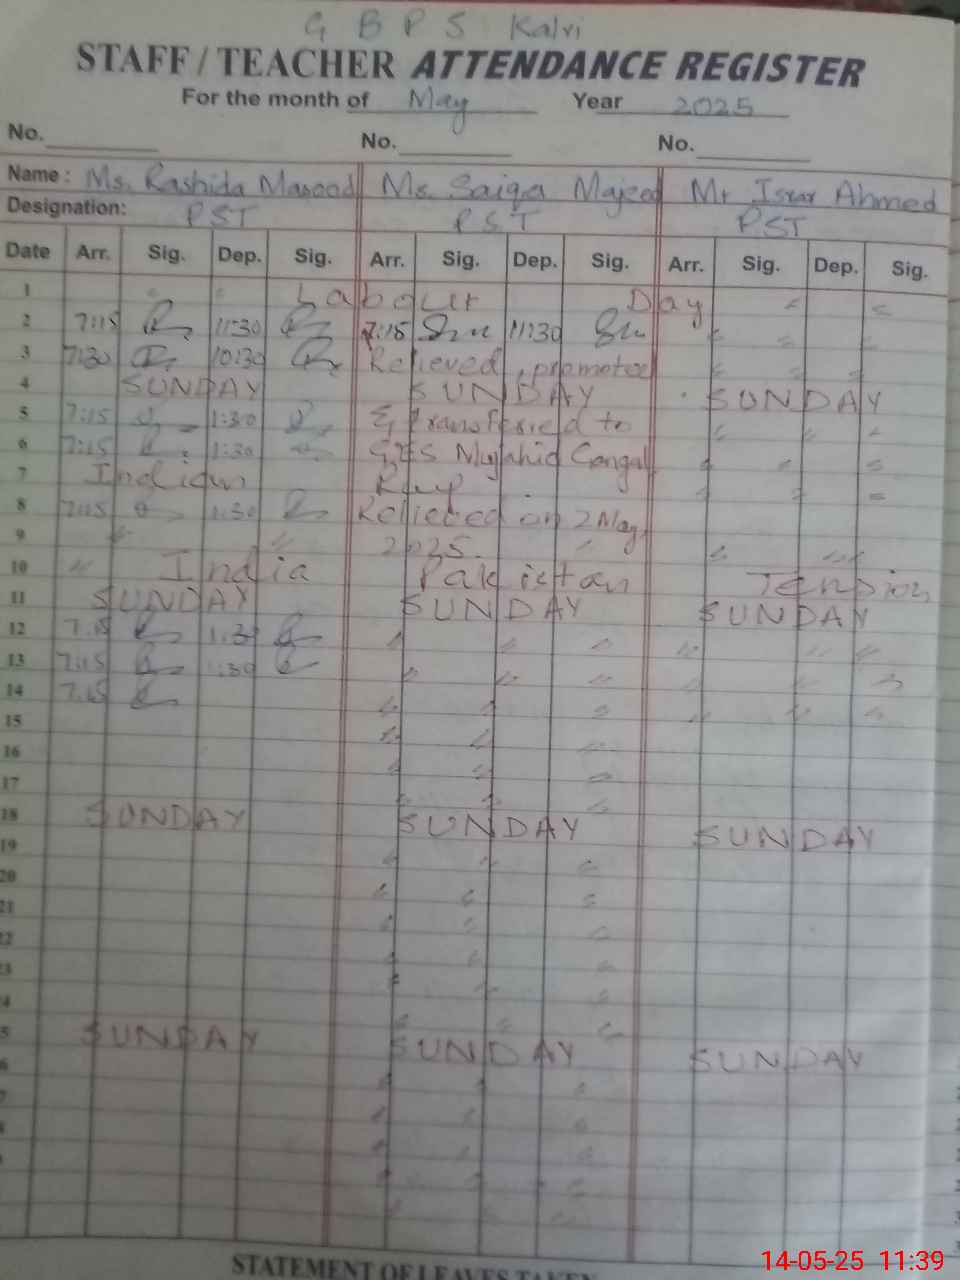 G B P S Kalri
STAFF / TEACHER ATTENDANCE REGISTER
For the month of May Year 2025
No. No. No.
Name : Ms. Rashida Masood Ms. Saiqa Majeed Mr Israr Ahmed
Designation: PST PST PST
Date Arr. Sig. Dep. Sig. Arr. Sig. Dep. Sig. Arr. Sig. Dep. Sig.
1 Labour Day
2 7:15 11:30 7:15 11:30
3 7:30 10:30 Relieved, promoted
4 SUNDAY SUNDAY SUNDAY
5 7:15 1:30 & transferred to
6 7:15 1:30 Mujahid
7 Indian
8 7:15 1:30 Relieved on 2 May,
9 2025.
10 India Pakistan Tension
11 SUNDAY SUNDAY SUNDAY
12 7:15 1:30
13 7:15 1:30
14 7:15
15
16
17
18 SUNDAY SUNDAY SUNDAY
19
20
21
22
23
24
25 SUNDAY SUNDAY SUNDAY
STATEMENT OF LEAVES TAKEN
14-05-25 11:39